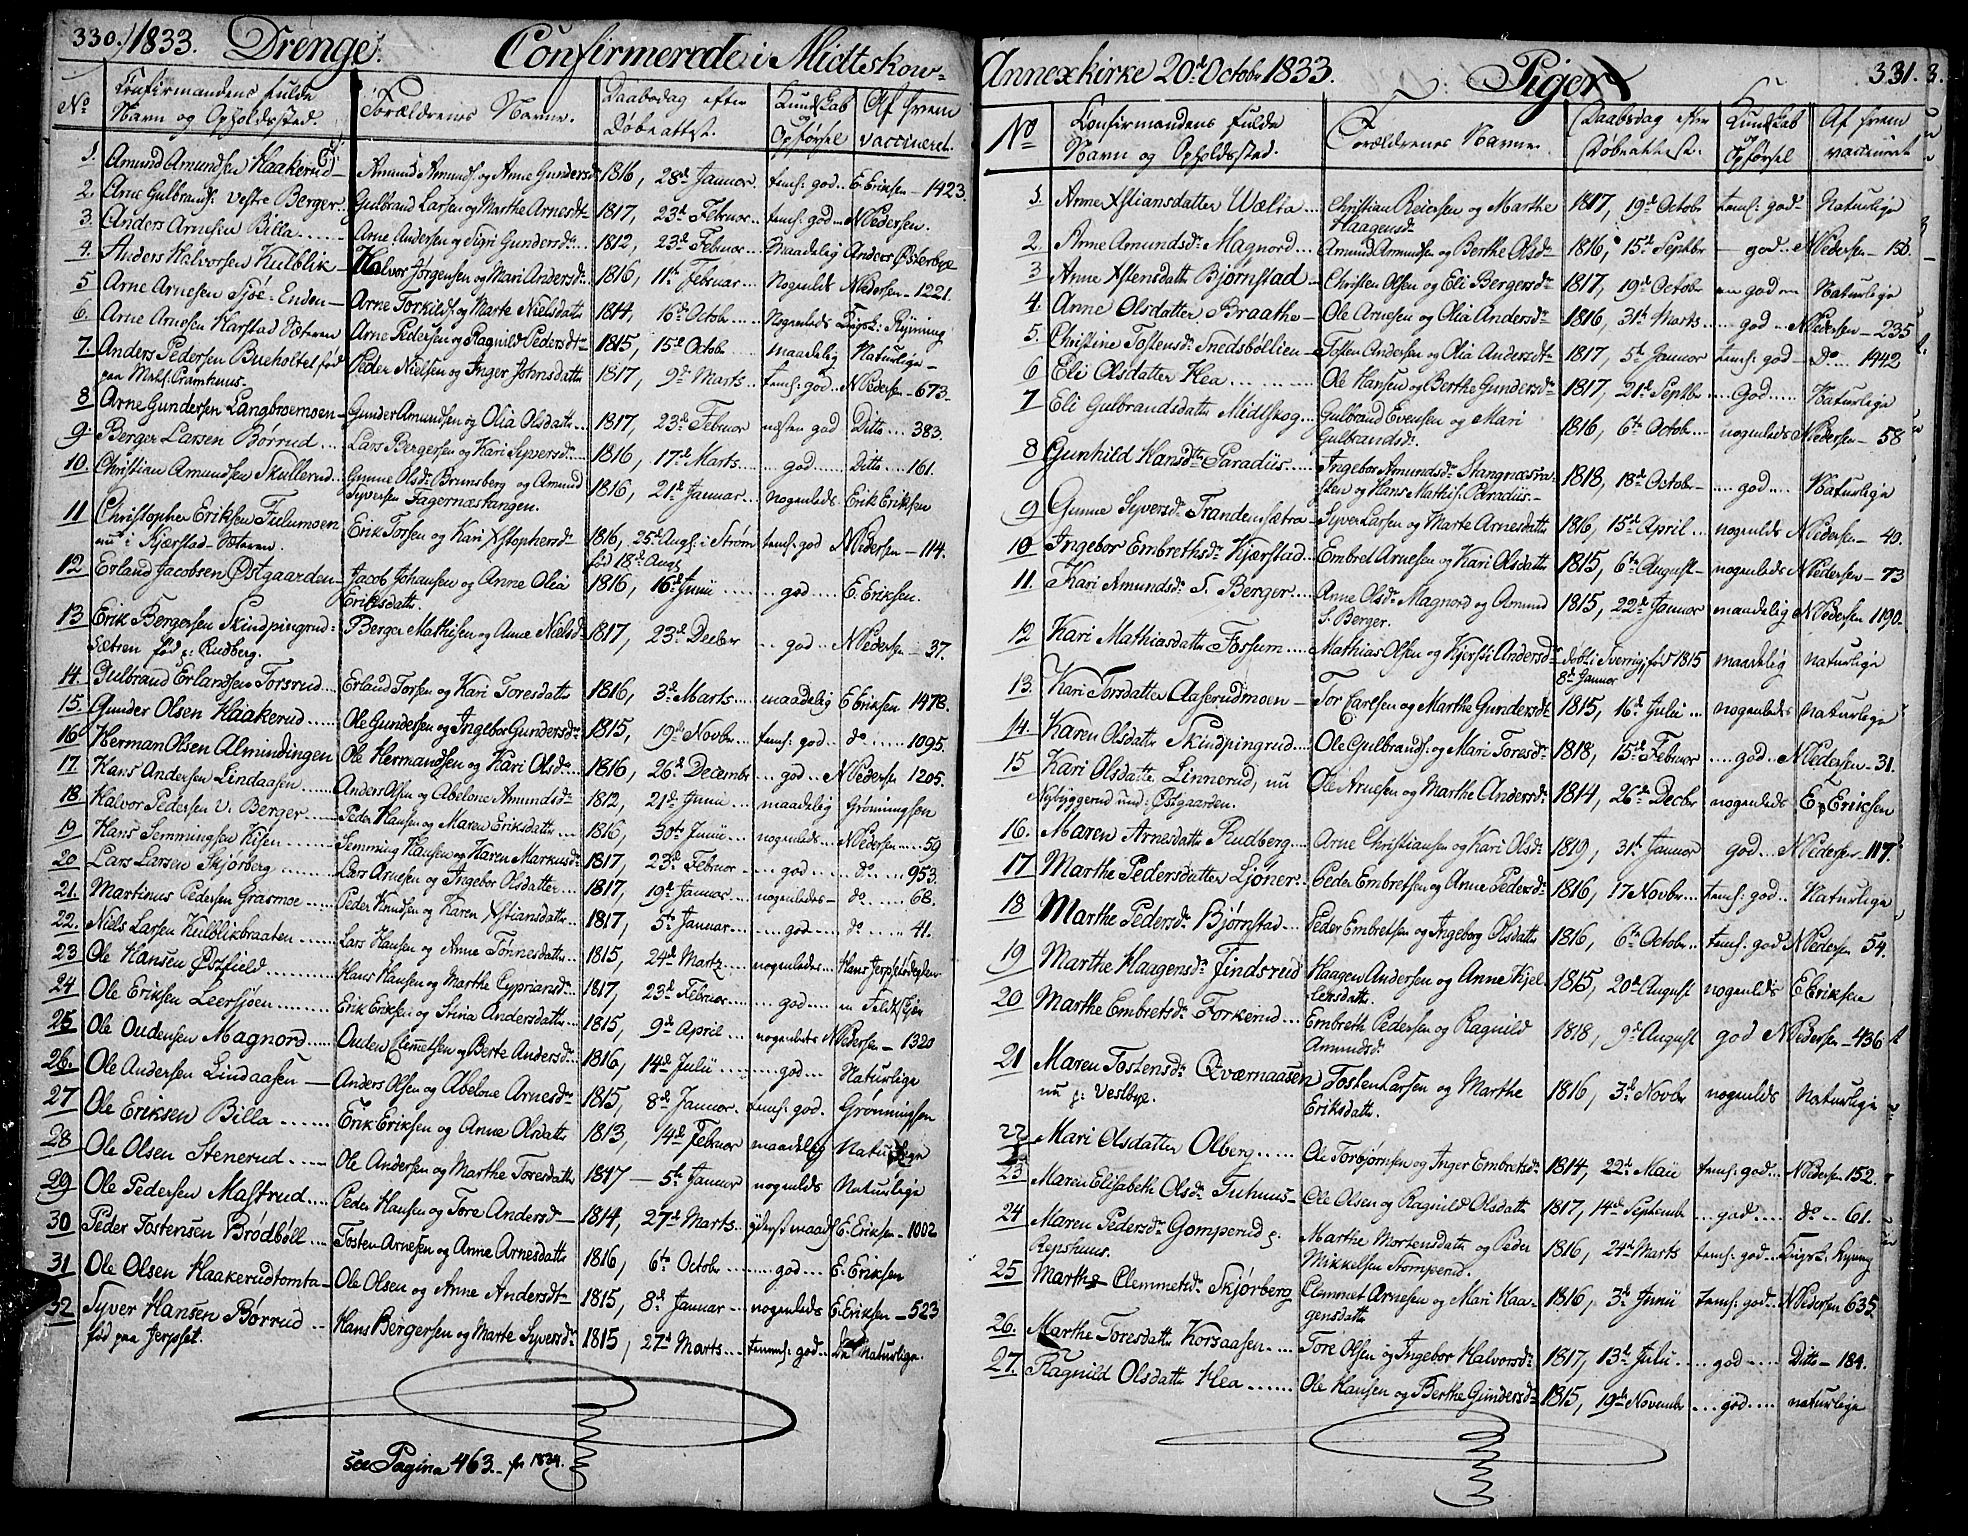 330. 1833. Drenge. Confirmerede i Midtskow-
No Confirmandens fulde Navn og Opholdssted. Forældrenes Navne. Daabsdag efter Døbeattest. Kundskab og Opførsel Af hvem vaccineret.
1. Amund Amundsen Haakerud Amund Amunds: og Anne Gundersd. 1816, 28de Januar. temf: god.. E. Eriksen - 1423
2. Arne Gulbrands: vestre Berger. Gulbrand Larsen og Marthe Arnesdt- 1817, 23d Februar.. temf: god... N Pedersen.
3. Anders Arnesen Billa Arne Andersen og Sigri Gundersdr. 1812, 23d Februar... Maadelig Anders Østerbye
4. Anders Halvorsen Kulblik- Halvor Jørgensen og Mari Andersdr 1816, 11te Februar... Nogenlds N Pedersen - 1221.
5 Arne Arnesen Sjøe-Enden Arne Torkilds: og Marte Nielsdattr 1814, 16d Octobr Nogenlds
6. Arne Arnesen Harstad Sæteren Arne Pedersen og Ragnild Pedersdtr 1815, 15d Octobr maadelig Naturlige -
7. Anders Pedersen Bueholtet fød Peder Nielsen og Inger Johnsdattr 1817, 9d Marts.. temf: god.. N Pedersen - 673.
8 Arne Gundersen Langbroemoen Gunder Amundsen og Olia Olsdattr... 1817, 23d Februar næsten god Ditto.. 383.
9. Berger Larsen Børrud Lars Bergersen og Kari Syversdr... 1816, 17d Marts.... god...... Ditto.. 161.
10. Christian Amundsen Skullerud.. Gunne Olsdr Brunsberg og Amund 1816, 21d Januar... nogenlds Erik Eriksen
Syversen Fagernæstangen.
11 Christopher Eriksen Fulumoen Erik Torsen og Kari Xstophersd- 1816, 25d Augs. i Strøm temf: god N Pedersen - 114.
nu i Kjærstad-Sæteren. fød 18d Augs
12 Erland Jacobsen Østgaarden Jacob Johansen og Anne Olia 1816, 16d Junii ....... god.... E. Eriksen.
Eriksdattr.
13 Erik Bergersen Skindpingrud= Berger Mathisen og Anne Nielsd 1817, 23d Decbr ... god.. N Pedersen - 37.
Sætren fød p: Rudberg.
14. Gulbrand Erlandsen Torsrud.... Erland Torsen og Kari Toresdattr 1816, 3d Marts.... maadelig E Eriksen 1478.
15. Gunder Olsen Haakerud ...... Ole Gundersen og Ingebor Gundersdr. 1815, 19d Novbr... temf: god.. do ..... 1095.
16 Herman Olsen Almindingen Ole Hermandsen og Kari Olsd... 1816, 26d Decembr... god... N Pedersen 1205.
17 Hans Andersen Lindaasen..... Anders Olsen og Abelone Amundsdr 1812, 21d Junii .... maadelig Grønningsen
18 Halvor Pedersen V. Berger Peder Hansen og Maren Eriksdattr... 1816, 30te Junii ... nogenlds.. N Pedersen.... 59
19 Hans Semmingsen Kisen Semming Hansen og Karen Markusdr. 1817, 23d Februar... god .... do ... 953.
20 Lars Larsen Skjørberg Lars Arnesen og Ingebor Olsdatter.... 1817, 19d Januar.. nogenledes- do ...... 68.
21. Martinus Pedersen Grasmoe Peder Knudsen og Karen Xstiansdattr.. 1817, 5te Januar..... god.... do ..... 41.
22. Niels Larsen Kulblikbraaten Lars Hansen og Anne Tønnesdattr.. 1815, 24d Martz... nogenledes...
23 Ole Hansen Østfield Hans Hansen og Marthe Cypriansdr... 1817, 23d Februar.... god....
24 Ole Eriksen Leersjøen Erik Eriksen og Stina Andersdattr.. 1815, 9d April ... nogenlets N Pedersen - 1320
25 Ole Oudensen Magnord.... Ouden Clemetsen og Berte Andersdr. 1816, 14d Julii ........ god.... Naturlige
26. Ole Andersen Lindaasen Anders Olsen og Abelone Arnesdr.. 1815, 8de Januar. temf: god. Grønningsen
27 Ole Eriksen Billa Erik Eriksen og Anne Olsdattr 1813, 14d Februar maadelig Naturlige
28 Ole Olsen Stenerud Ole Andersen og Marthe Toresdattr 1817 - 5te Januar nogenlds Naturlige
29 Ole Pedersen Mastrud.... Peder Hansen og Tore Andersd 1814, 27d Marts.. yderst maad E. Eriksen - 1002
30 Peder Tostensen Brødbøll Tosten Arnesen og Anne Arnesdattr 1816, 6te Octobr ..... god.... E. Eriksen
31 Ole Olsen Haakerudtomta Ole Olsen og Anne Andersdt- 1815, 8de Januar ... nogenleds E. Eriksen - 523
32 Syver Hansen Børrud Hans Bergersen og Marte Syversdr 1815, 27d Marts... temmf: god.. Naturlige.
fød paa Jerpset.
see Pagina 463. fr 1834.
Annexkirke 20de Octobr 1833. Piger 331.
No Confirmandens fulde Navn og Opholdssted. Forældrenes Navne. Daabsdag efter Døbeattest. Kundskab Opførsel Af hvem vaccineret
1. Anne Xstiansdatter Wælia... Christian Reiersen og Marthe 1817, 19d Octobr temf: god- Naturlige
Haagensdr.
2. Anne Amundsdr Magnord... Amund Amundsen og Berthe Olsd- 1816, 15d Septbr - god.. N Pedersen - 150.
3 Anne Xstensdattr Bjørnstad - Christen Olsen og Eli Bergersdr 1817, 19d Octobr god Naturlige
4. Anne Olsdatter Braathe- Ole Arnesen og Olia Andersdr- 1816, 31te Marts..... god .. N Pedersen - 235
5. Christine Tostensdr Snedsbøllien - Tosten Andersen og Olia Andersdt- 1817, 5te Januar temf: god - Do .... 1442
6 Eli Olsdatter Hea Ole Hansen og Berthe Gundersdr 1817, 21d Septbr ... God..... Naturlige
7 Eli Gulbrandsdattr Midtskog.. Gulbrand Evensen og Mari 1816, 6te Octobr... nogenleds N Pedersen - 58
Gulbrandsdr.
8 Gunhild Hansdattr Paradiis.... Ingebor Amundsdr Stangnæs 1818, 18d Octobr- .... god.... Naturlige
og Hans Mathis: Paradiis-
9 Gunne Syversdr Trandemsætra- Syver Larsen og Marte Arnesdattr 1816, 15d April ... nogenleds N Pedersen - 40.
10 Ingebor Embrethsdr Kjærstad.. Embret Arnesen og Kari Olsdattr 1815, 6te August- nogenleds N Pedersen - 73
11. Kari Amundsdr S. Berger.... Anne Olsdr Magnord og Amund 1815, 22d Januar maadelig N Pedersen 1190.
S. Berger.
12 Kari Mathiasdattr Fossum..... Mathias Olsen og Kjersti Andersdr døbt i Sverrig fød 1815 maadelig naturlige
8de Januar
13. Kari Torsdatter Aaserudmoen - Tor Carlsen og Marthe Gundersdt 1815, 16d Julii ... nogenleds naturlige
14. Karen Olsdattr Skindpingrud.... Ole Gulbrands: og Mari Toresdr.. 1818, 15d Februar .... god... N Pedersen - 31.
15 Kari Olsdattr Linnerud, nu Ole Arnesen og Marthe Andersdr. 1814, 26d Decbr nogenleds E Eriksen
Nybyggerud und: Østgaarden.
16. Maren Arnesdattr Rudberg.... Arne Christiansen og Kari Olsdr 1819, 31te Januar god ... N Pedersen 117.
17 Marthe Pedersdatter Ljøner.. Peder Embretsen og Anne Pedersdr 1816, 17 Novbr... temf: god.. Naturlige
18 Marthe Pedersdr Bjørnstad... Peder Embretsen og Ingeborg Olsdattr 1816, 6te Octobr... temf: god N Pedersen 54.
19 Marthe Haagensdr Findsrud Haagen Andersen og Anne Kjel- 1815, 20d August nogenlds E Eriksen
lersdattr.
20 Marthe Embretsdr Forkerud... Embreth Pedersen og Ragnild 1818, 9de August god N Pedersen - 436
Amundsdr
21 Maren Tostensdr Qværnaasen Tosten Larsen og Marthe 1816, 3d Novbr nogenlds naturlige
nu p: Vestbye. Eriksdattr.
22 Mari Olsdatter Olberg...... Ole Torbjørnsen og Inger Embretsdr 1814, 22d Maii temf: god... N Pedersen 152.
23 Maren Elisabeth Olsdr Tuhuus- Ole Olsen og Ragnild Olsdattr 1817, 14d Septembr ... god.... do ... 61.
24 Maren Pedersdr Gomperud p. Marthe Mortensdattr og Peder 1816, 24d Marts temf: god..
Repshuus. Mikkelsen Stomperud.
25 Marthe Clemmetsdr Skjørberg Clemmet Arnesen og Mari Haa- 1816, 3d Junii temf: god.. N Pedersen 635.
gensdattr
26. Marthe Toresdattr Korsaasen.... Tore Olsen og Ingebor Halvorsdr 1817, 13d Julii .... god .... Ditto - 184.
27. Ragnild Olsdattr Hea ...... Ole Hansen og Berthe Gundersdr 1815, 19d Novembr ... god .... naturlige